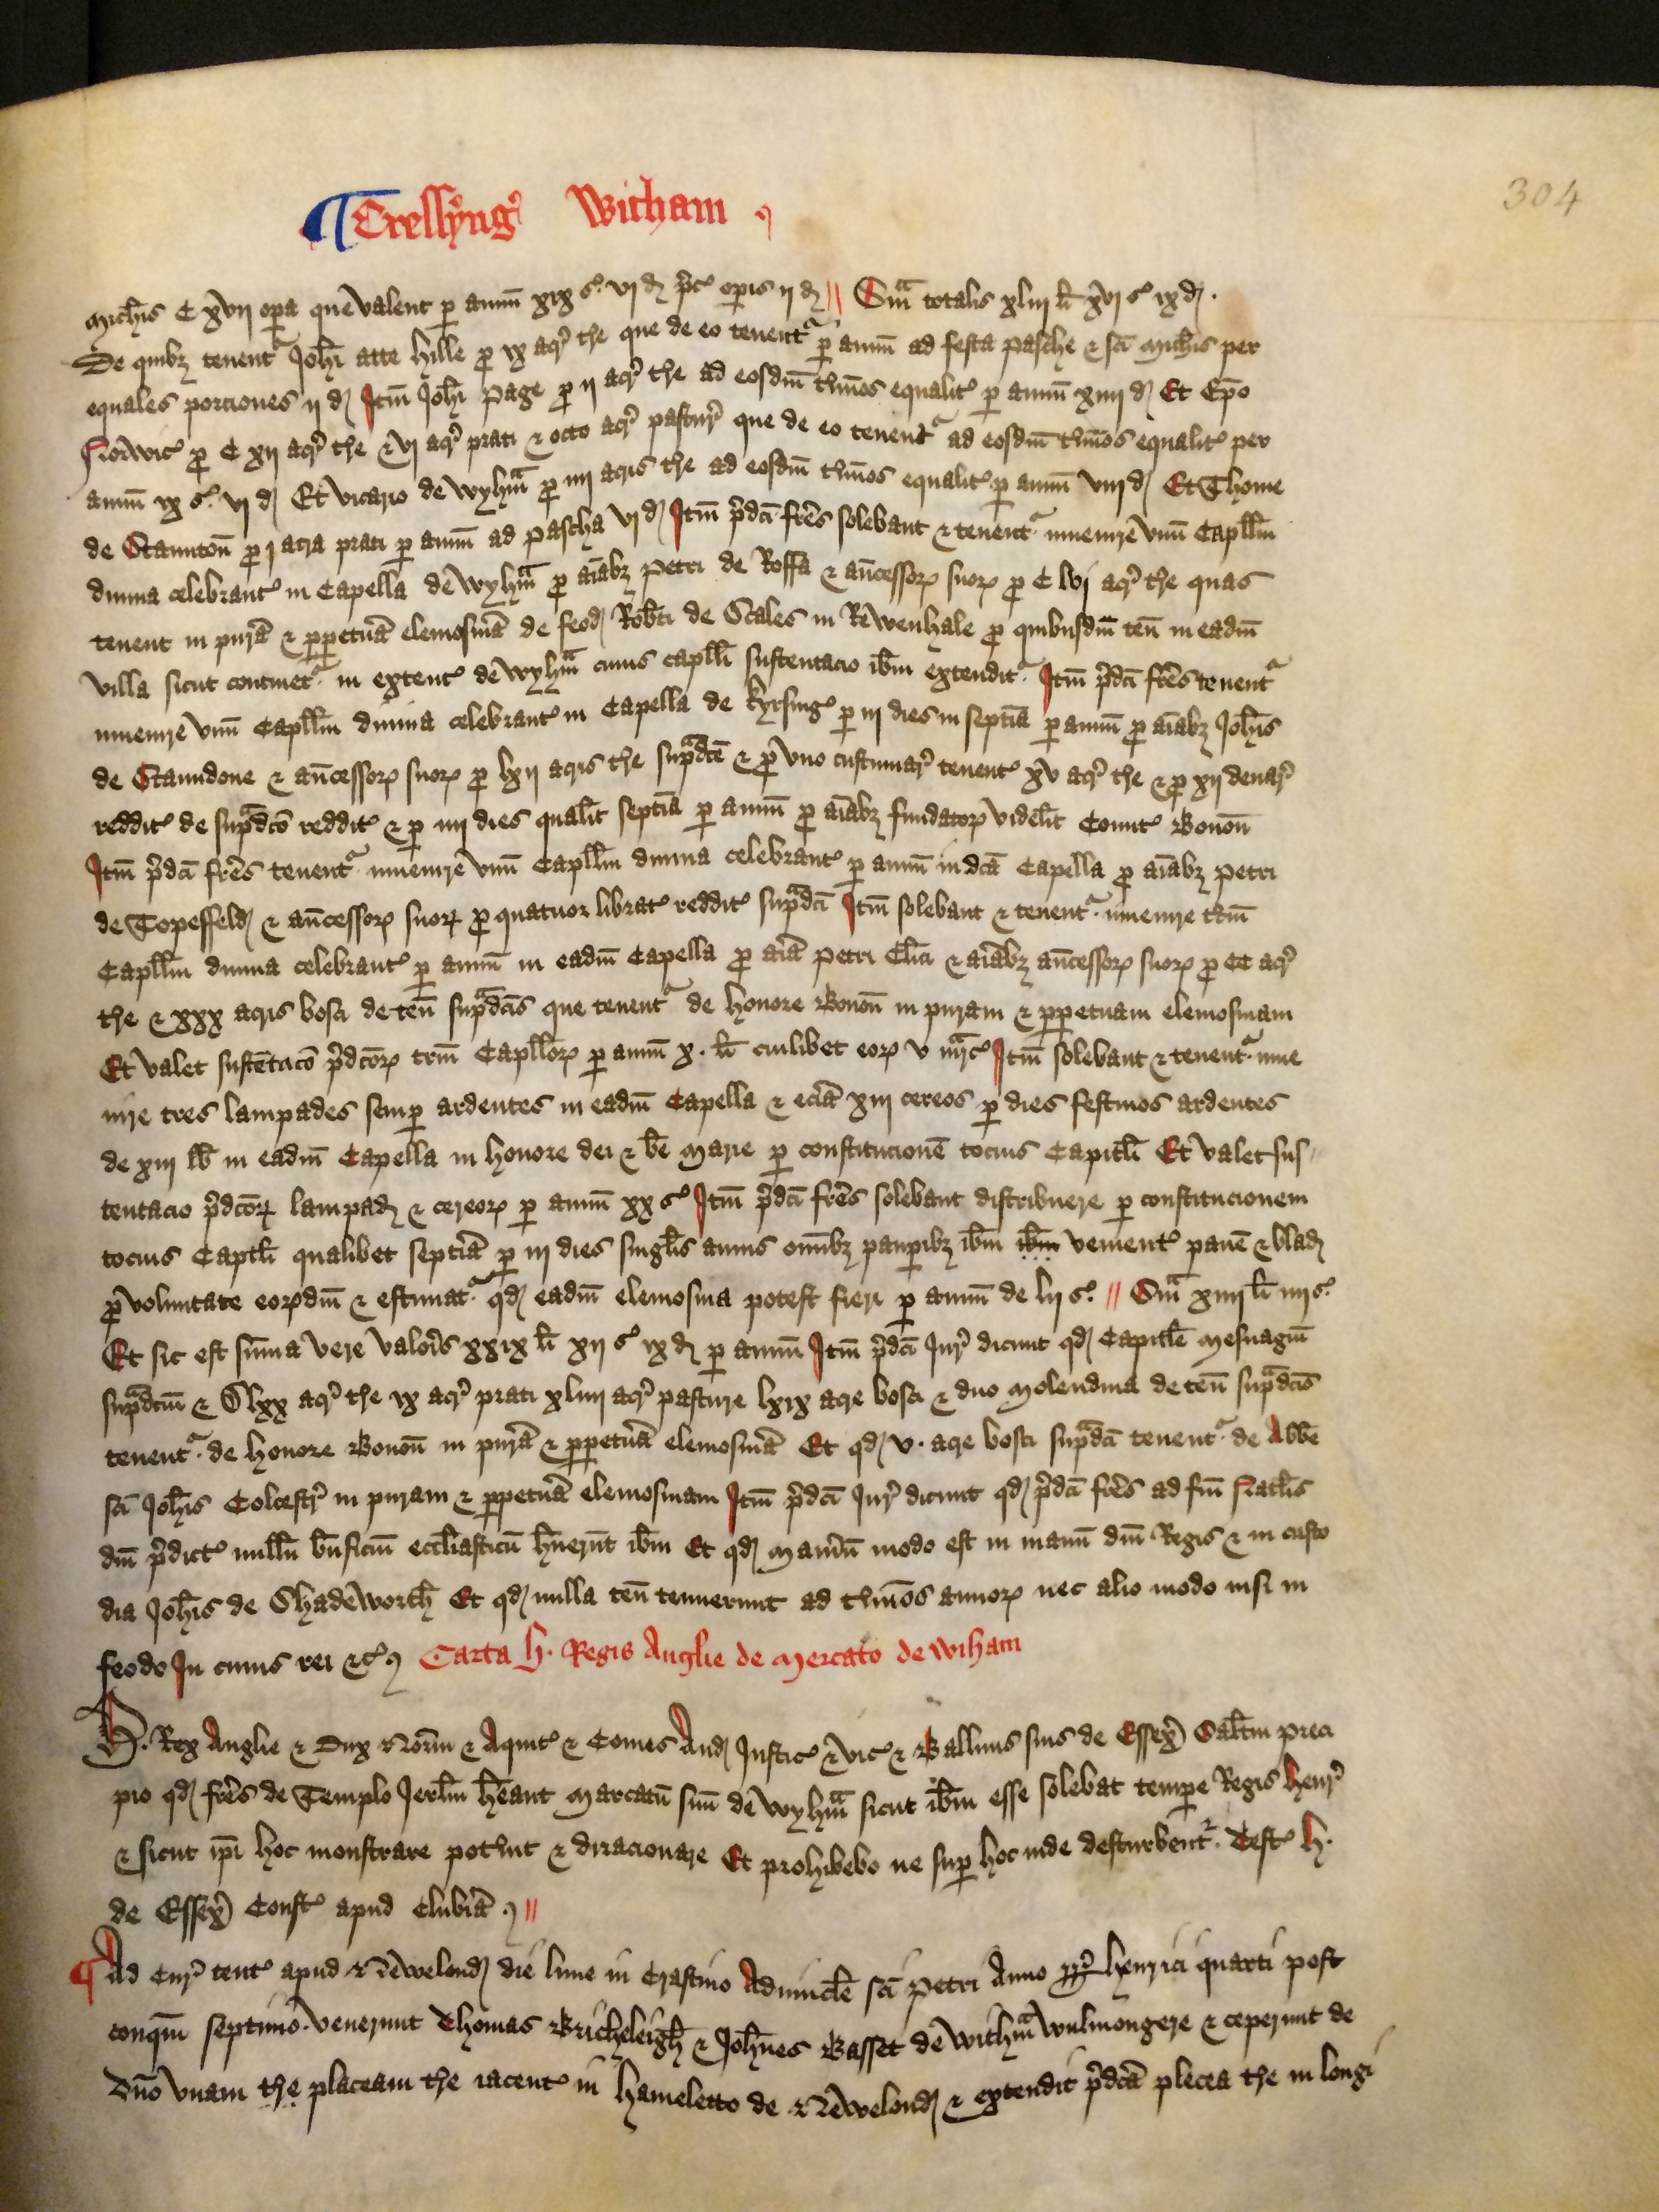 304
¶ Cressyng' Witham
Mich̄is C xvij opa que valent p annū xix s' vj đ p̄c' opis ij đ // Sm̄a totalis xliij li xvj s' ix đ.
De quibȝ tenent' Joh̄i atte hille p ix acr' t̄re que de eo tenent' p annū ad festa Pasche & sc̄i Mich̄is per
equales porciones ij đ Itm̄ Joh̄i Page p ij acr' t̄re ad eosdm̄ t̄mios equalit' p annū xiiij đ Et Ep̄o
Norwic' p C xij acr' t̄re & vj acr' prati & octo acr' pastur' que de eo tenent' ad eosdm̄ t̄mios equalit' per
annū ix s' vj đ Et vicario de Wyhm̄ p iiij acris t̄re ad eosdm̄ t̄mios equalit' p annū viij đ Et Thome
de Staunton̄ p j acra prati p annū ad Pascha vj đ Itm̄ p̄dc̄i fr̄es solebant & tenent' invenire vnū Capll̄m
divina celebrant' in Capella de Wyhm̄ p aīabȝ Petri de Roffa & an̄cessoꝝ suoꝝ p C lvj acr' t̄re quas
tenent in purā & ppetuā elemosinā de feod' Rob̄ti de Scales in Rewenhale p quibusdm̄ ten̄ in eadm̄
villa sicut continet' in extent' de Wyhm̄ cuius capll̄i sustentacio ib̄m extendit' Itm̄ p̄dc̄i fr̄es tenent'
invenire vnū Capll̄m divina celebrant' in Capella de Kyrsing' p iij dies in septīa p annū p aīabȝ Joh̄is
de Staundone & an̄cessoꝝ suoꝝ p lxij acris t̄re sup̄dc̄e & p vno custumar' tenent' xv acr' t̄re & p xij denar'
reddit' de sup̄dc̄o reddit' & p iiij dies qualit' septīa p annū p aīabȝ fundatoꝝ videlit Comit' Bonon̄
Itm̄ p̄dc̄i fr̄es tenent' invenire vnū Capll̄m divina celebrant' p annū in dc̄a Capella p aīabȝ Petri
de Topeffeld' & an̄cessoꝝ suoꝝ p quatuor librat' reddit' sup̄dc̄i Itm̄ solebant & tenent' invenire
Capll̄m divina celebrant' p annū in eadm̄ Capella p aīa Petri Cl̄ici & aīabȝ an̄cessoꝝ suoꝝ p CC acr'
t̄re & xxx acris bosci de ten̄ sup̄dc̄is que tenent' de honore Bonon̄ in puram & ppetuam elemosinam
Et valet sustētac̄o p̄dc̄oꝝ triū Capll̄oꝝ p annū x. li cuilibet eoꝝ v m̄rc' Itm̄ solebant & tenent' inve
nire tres lampades semp ardentes in eadm̄ Capella & eciā xiij cereos p dies festivos ardentes
de xiij lb̄ in eadm̄ Capella in honore dei & b̄e Marie p constitucionē tocius Capitl̄i Et valet sus//
tentacio p̄dc̄oꝝ lampad' & cereoꝝ p annū xx s' Itm̄ p̄dc̄i fr̄es solebant distribuere p constitucionem
tocius Captl̄i qualibet septīa p iij dies singl̄is annis om̄ibȝ paupibȝ ib̄m ib̄m venient' panē & blad'
p voluntate eoꝝdm̄ & estimat' qđ eadm̄ elemosina potest fieri p annū de lij s' // Sm̄a xiiij li iiij s'
Et sic est sum̄a vere valoris xxix li xij s' ix đ p annū Itm̄ p̄dc̄i Jur' dicunt qđ Capitl̄e Mesuagiū
sup̄dc̄m & Dlxx acr' t̄re ix acr' prati xliij acr' pasture lxix acre bosci & duo Molendina de ten̄ sup̄dc̄is
tenent' de honore Bonon̄ in purā & ppetuā elemosinā Et qđ v. acre bosci sup̄dc̄i tenent' de Abb̄e
sc̄i Joh̄is Colcestr' in puram & ppetuā elemosinam Itm̄ p̄dc̄i Jur' dicunt qđ p̄dc̄i fr̄es ad fm̄ Natal̄is
dm̄ p̄dict' nullū bn̄ficiū eccl̄iasticū h̄uerūt ib̄m Et qđ Man̄iū modo est in manū dm̄ Regis & in custo
dia Joh̄is de Shadeworth̄ Et qđ nulla ten̄ tenuerunt ad t̄mios annoꝝ nec alio modo nisi in
feodo In cuius rei &c' Carta h. Regis Anglie de Mercato de Wiham
H. Rex Anglie & Dux Norm̄ & Aquit' & Comes And' Justic' & vic' & Ballivis suis de Essex' Salt̄m Preci
pio qđ fr̄es de Templo Jerlm̄ h̄eant Marcatū suū de Wyhm̄ sicut ib̄m esse solebat tempe Regis henr'
& sicut ip̄i hoc monstrare pot̄unt & diracionare Et prohibebo ne sup hoc inde desturbent' Test' h.
de Essex' Const' apud Clubiā //
¶ Ad Cur' tent' apud Newelond' die lune in Crastino Advincl̄e sc̄i Petri Anno rr' henrici quarti post
conqm̄ septimo venerunt Thomas Bricheleigh̄ & Joh̄nes Basset de Withm̄ Wulmongere & ceperunt de
Dn̄o vnam t̄re placeam t̄re iacent' in hameletto de Newelond' & extendit p̄dc̄a plecea t̄re in longi